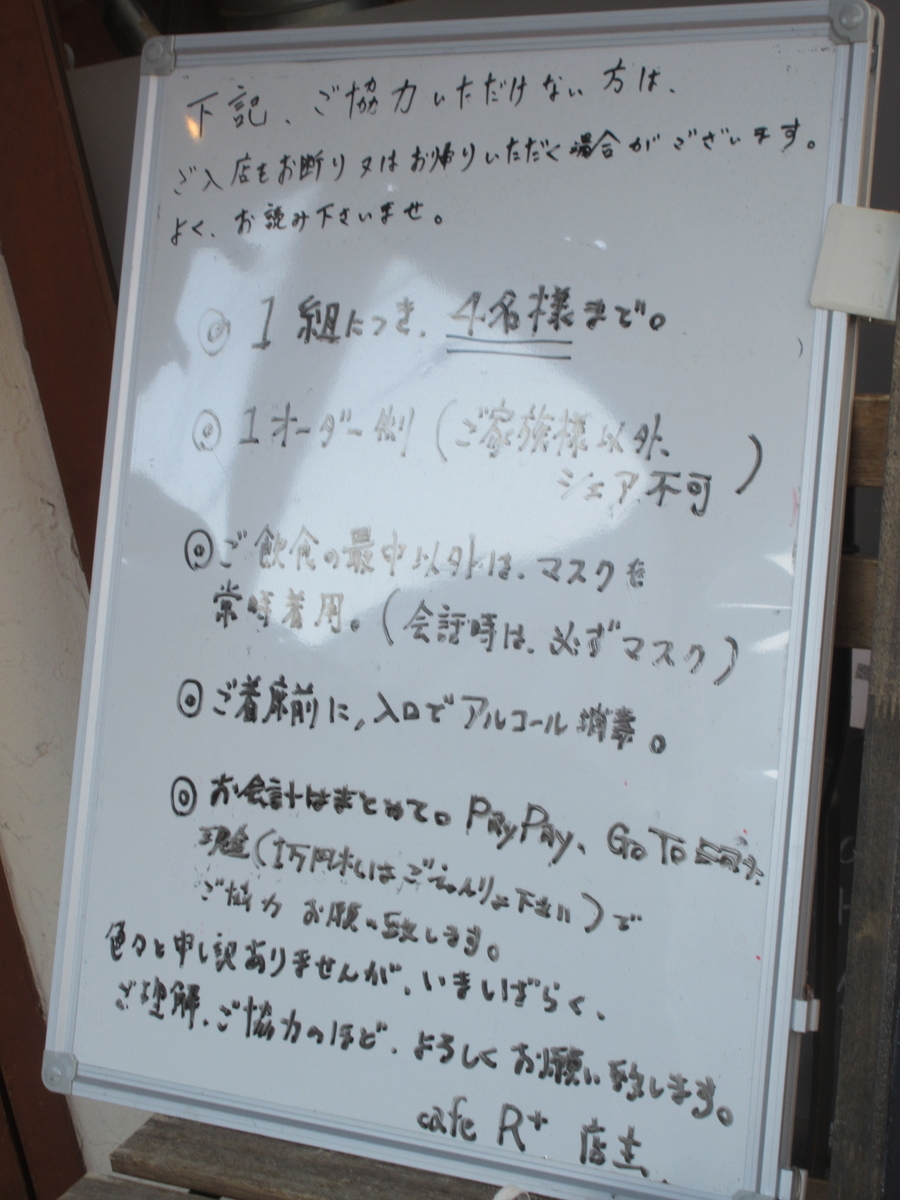 下記、ご協力いただけない方は、
ご入店もお断り又はお帰りいただく場合がございます。
よく、お読み下さいませ。
◎1組につき、4名様まで。
◎1オーダー制(ご家族様以外、
シェア不可)
◎ご飲食の最中以外は、マスクを
常時着用。(会計時は、必ずマスク)
◎ご着席前に、入口でアルコール消毒。
◎お会計はまとめて。PayPay、GoTo
現金(1万円札はごえんりょ下さい)で
ご協力お願い致します。
色々と申し訳ありませんが、いましばらく、
ご理解、ご協力のほど、よろしくお願い致します。
cafe R+ 店主